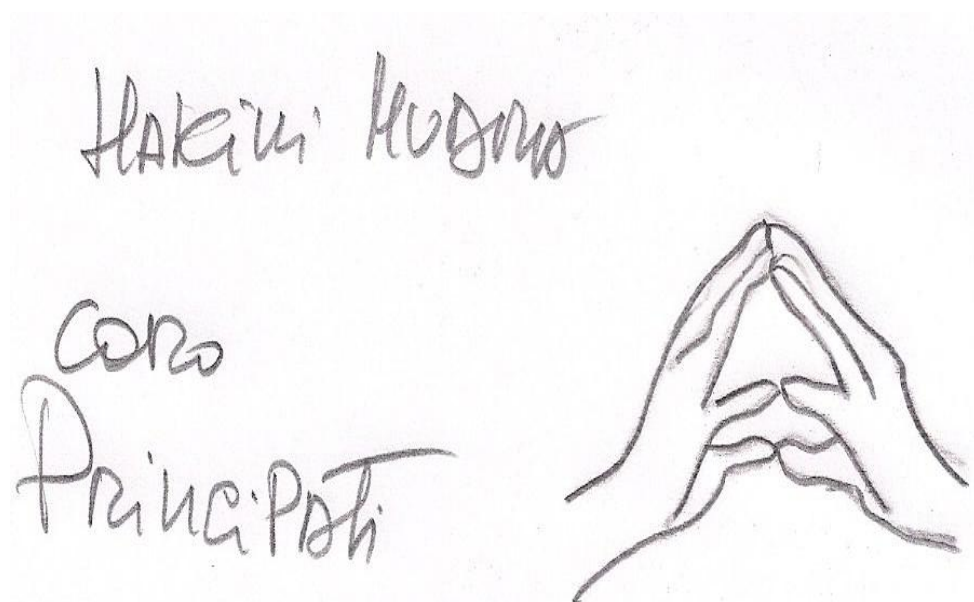 HAKini MUDRA
CORO
PRinciPATi